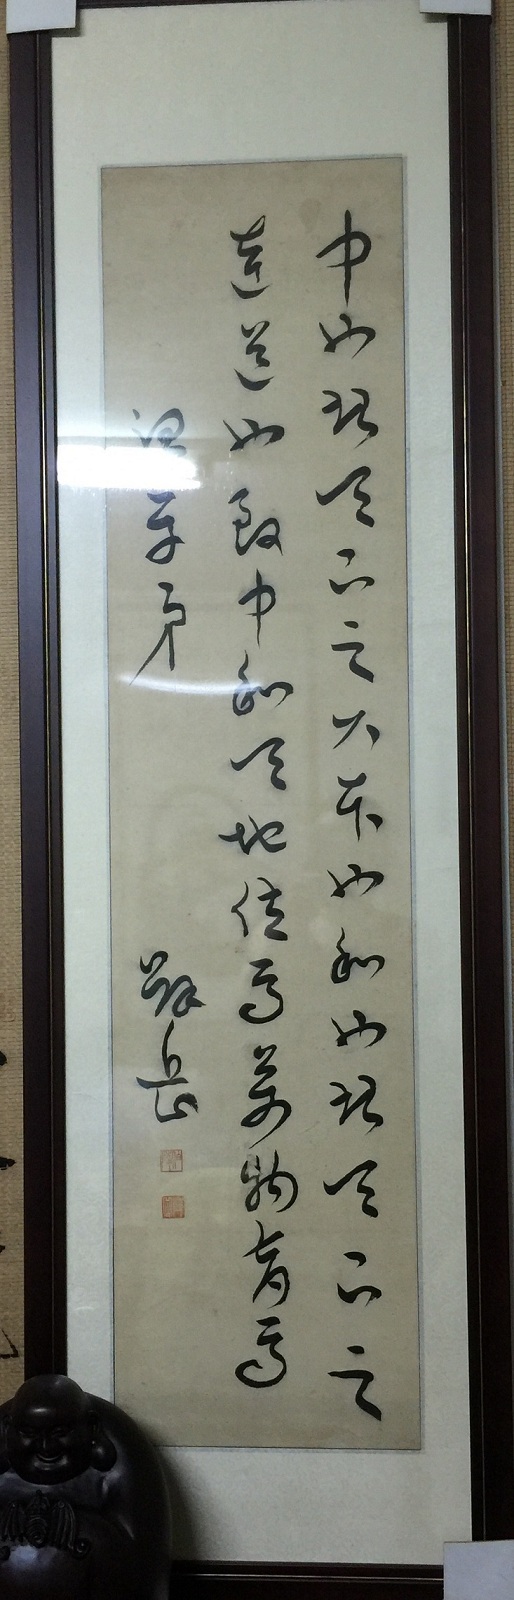 中也者天下之大本也和也者天下之
達道也致中和天地位焉萬物育焉
弟 薛岳